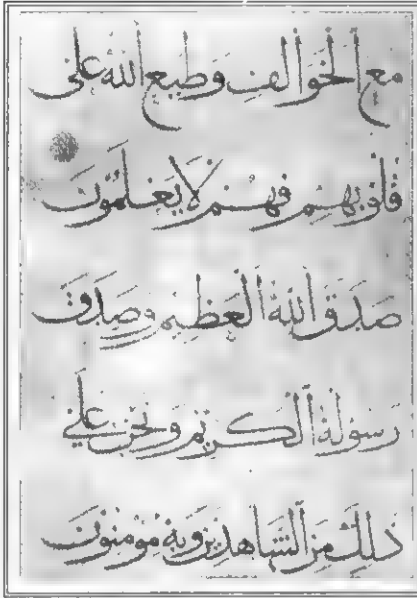 مَعَ الْخَوَالِفِ وَطَبَعَ اللَّهُ عَلَى
قُلُوبِهِمْ فَهُمْ لَا يَعْلَمُونَ
صَدَقَ اللَّهُ الْعَظِيمُ وَصَدَقَ
رَسُولُهُ الْكَرِيمُ وَنَحْنُ عَلَى
ذَلِكَ مِنَ الشَّاهِدِينَ وَبِهِ مُؤْمِنُونَ